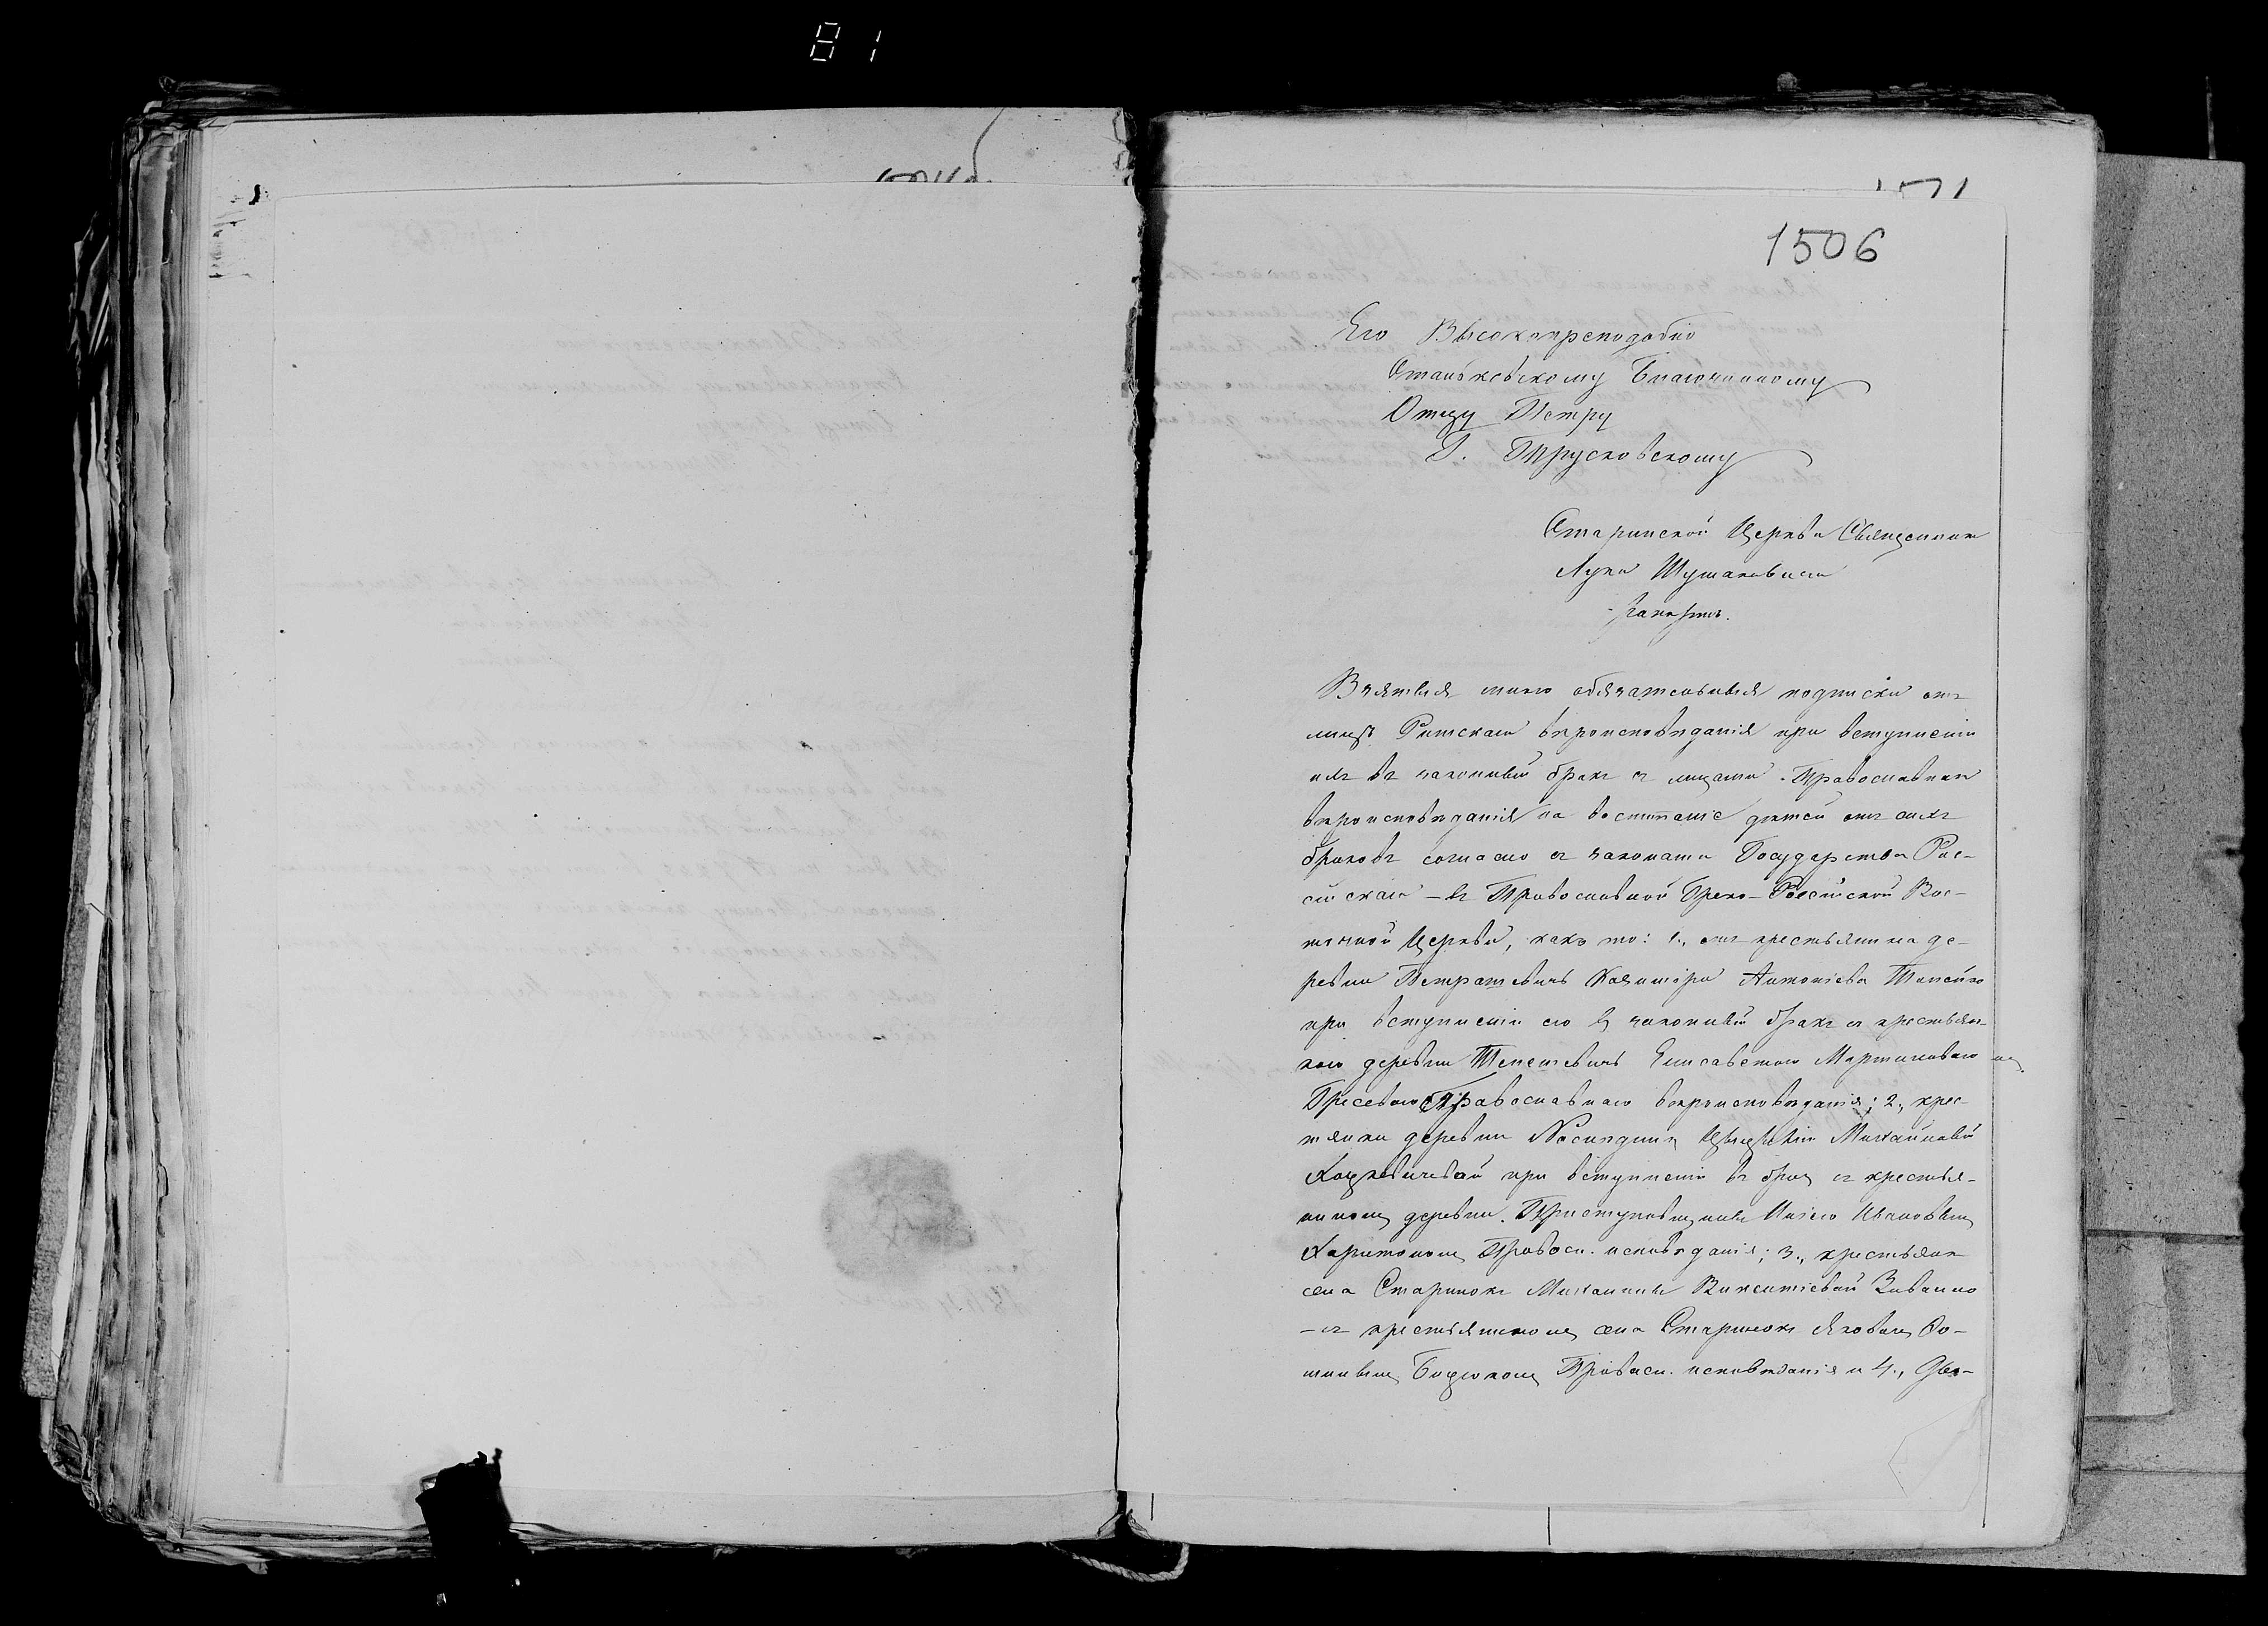 81
1506
Его Высокопреподобію
Станьковскому Благочинному
Отцу Петру
Г. Прусковскому
Старинской Церкви Священника
Луки Шумаковича
рапортъ.
Взятыя мною обязательныя подписки отъ
лицъ Римскаго вѣроисповѣданія при вступленіи
ихъ въ законный бракъ съ лицами Православнаго
вѣроисповѣданія на воспитаніе дѣтей отъ сихъ
браковъ согласно съ законами Государства Рос-
сійскаго – въ Православной Греко-Россійской Вос-
точной Церкви, какъ то: 1., отъ крестьянина де-
ревни Петрашевичь Казиміра Антоніева
при вступленіи его въ законный бракъ съ крестьян-
кою деревни Елисаветою Мартиновою
Православнаго вѣроисповѣданія; 2., крес-
тянки деревни Михайловой
при вступленіи въ бракъ съ крестья-
ниномъ деревни Ивановымъ
Харитономъ Правосл. исповѣданія; 3., крестьянки
села Старинокъ Михалины Викентіевой
– съ крестьяниномъ села Старинокъ Яковомъ Фо-
минымъ Правосл. исповѣданія и 4.,